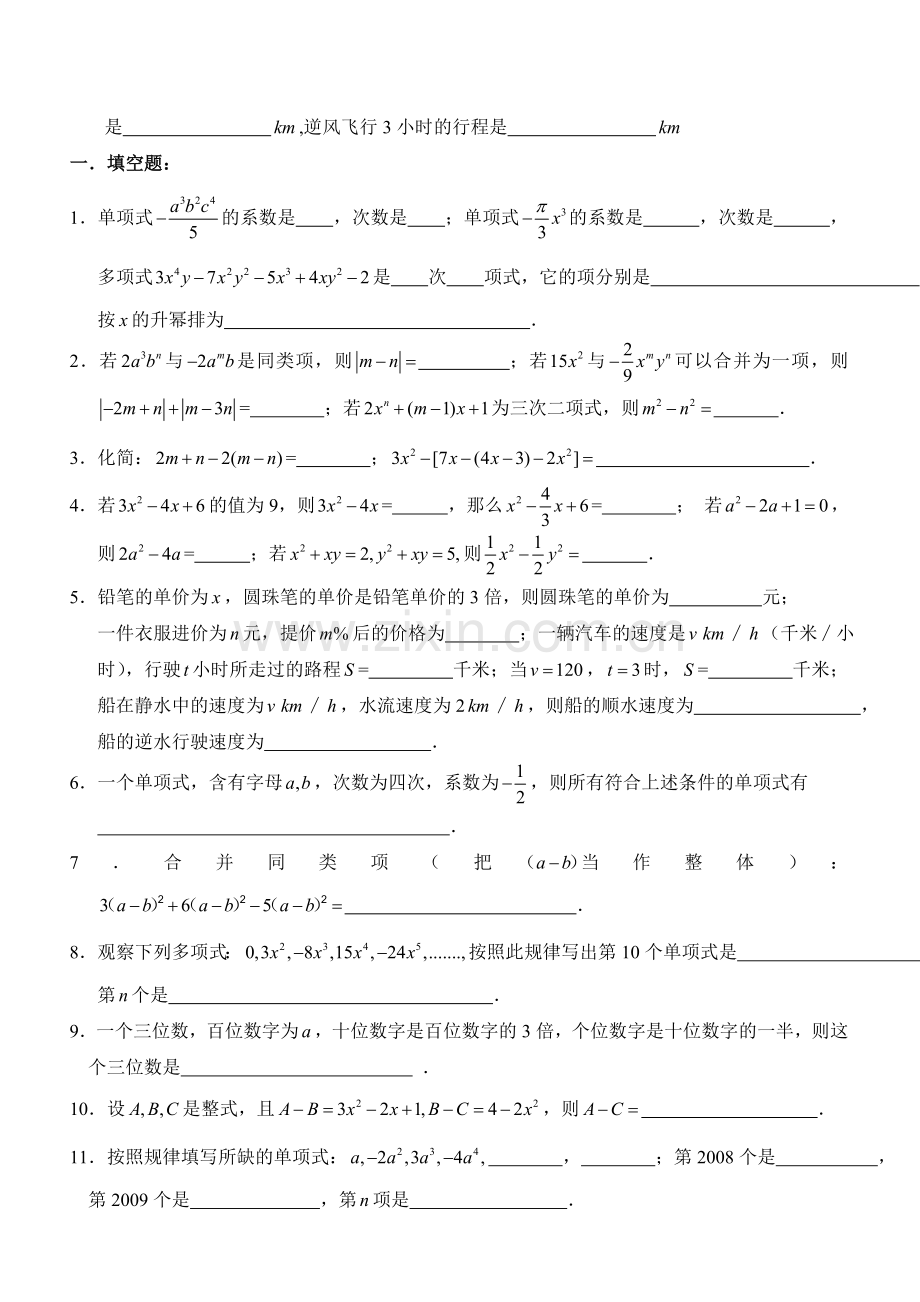 是________________km,逆风飞行3小时的行程是________________km
一．填空题：
1．单项式$-\frac{a^3b^2c^4}{5}$的系数是____，次数是____；单项式$-\frac{\pi}{3}x^3$的系数是______，次数是______，
多项式$3x^4y-7x^2y^2-5x^3+4xy^2-2$是____次____项式，它的项分别是______________________________
按$x$的升幂排为__________________________________．
2．若$2a^3b^n$与$-2a^mb$是同类项，则$|m-n|=$__________；若$15x^2$与$-\frac{2}{9}x^my^n$可以合并为一项，则
$|-2m+n|+|m-3n|=$________；若$2x^n+(m-1)x+1$为三次二项式，则$m^2-n^2=$_______．
3．化简：$2m+n-2(m-n)=$________；$3x^2-[7x-(4x-3)-2x^2]=$________________________．
4．若$3x^2-4x+6$的值为9，则$3x^2-4x=$______，那么$x^2-\frac{4}{3}x+6=$________； 若$a^2-2a+1=0$，
则$2a^2-4a=$______；若$x^2+xy=2,y^2+xy=5,$则$\frac{1}{2}x^2-\frac{1}{2}y^2=$_______．
5．铅笔的单价为$x$，圆珠笔的单价是铅笔单价的3倍，则圆珠笔的单价为__________元；
一件衣服进价为$n$元，提价$m\%$后的价格为________；一辆汽车的速度是$v$ km／h（千米／小
时），行驶$t$小时所走过的路程$S=$_________千米；当$v=120$，$t=3$时，$S=$_________千米；
船在静水中的速度为$v$ km／h，水流速度为2km／h，则船的顺水速度为__________________，
船的逆水行驶速度为__________________．
6．一个单项式，含有字母$a,b$，次数为四次，系数为$-\frac{1}{2}$，则所有符合上述条件的单项式有
______________________________________．
7．合并同类项（把$(a-b)$当作整体）：
$3(a-b)^2+6(a-b)^2-5(a-b)^2=$_________________________．
8．观察下列多项式：$0,3x^2,-8x^3,15x^4,-24x^5,.......,$按照此规律写出第10个单项式是____________________
第$n$个是___________________________________．
9．一个三位数，百位数字为$a$，十位数字是百位数字的3倍，个位数字是十位数字的一半，则这
个三位数是_________________________．
10．设$A,B,C$是整式，且$A-B=3x^2-2x+1,B-C=4-2x^2$，则$A-C=$___________________．
11．按照规律填写所缺的单项式：$a,-2a^2,3a^3,-4a^4,$________，________；第2008个是___________，
第2009个是______________，第$n$项是_________________．
www.zixin.com.cn